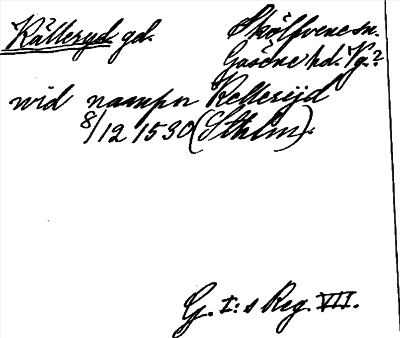 Källeryd. gd. Skölfvene sn.
Gäsene hd. Vg.?
wid nampn Kellerijd
8/12 1530 (Sthlm).
G. I:s Reg. VII.